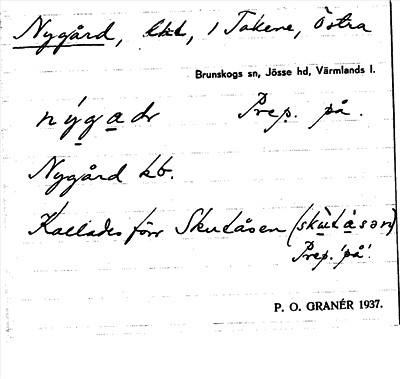 Nygård, lht, i Takene, Östra
Brunskogs sn, Jösse hd, Värmlands l.
nýgadr Prep. på.
Nygård kb.
Kallades förr Skutåsen (skùtásən)
Prep. 'på'.
P. O. GRANÉR 1937.